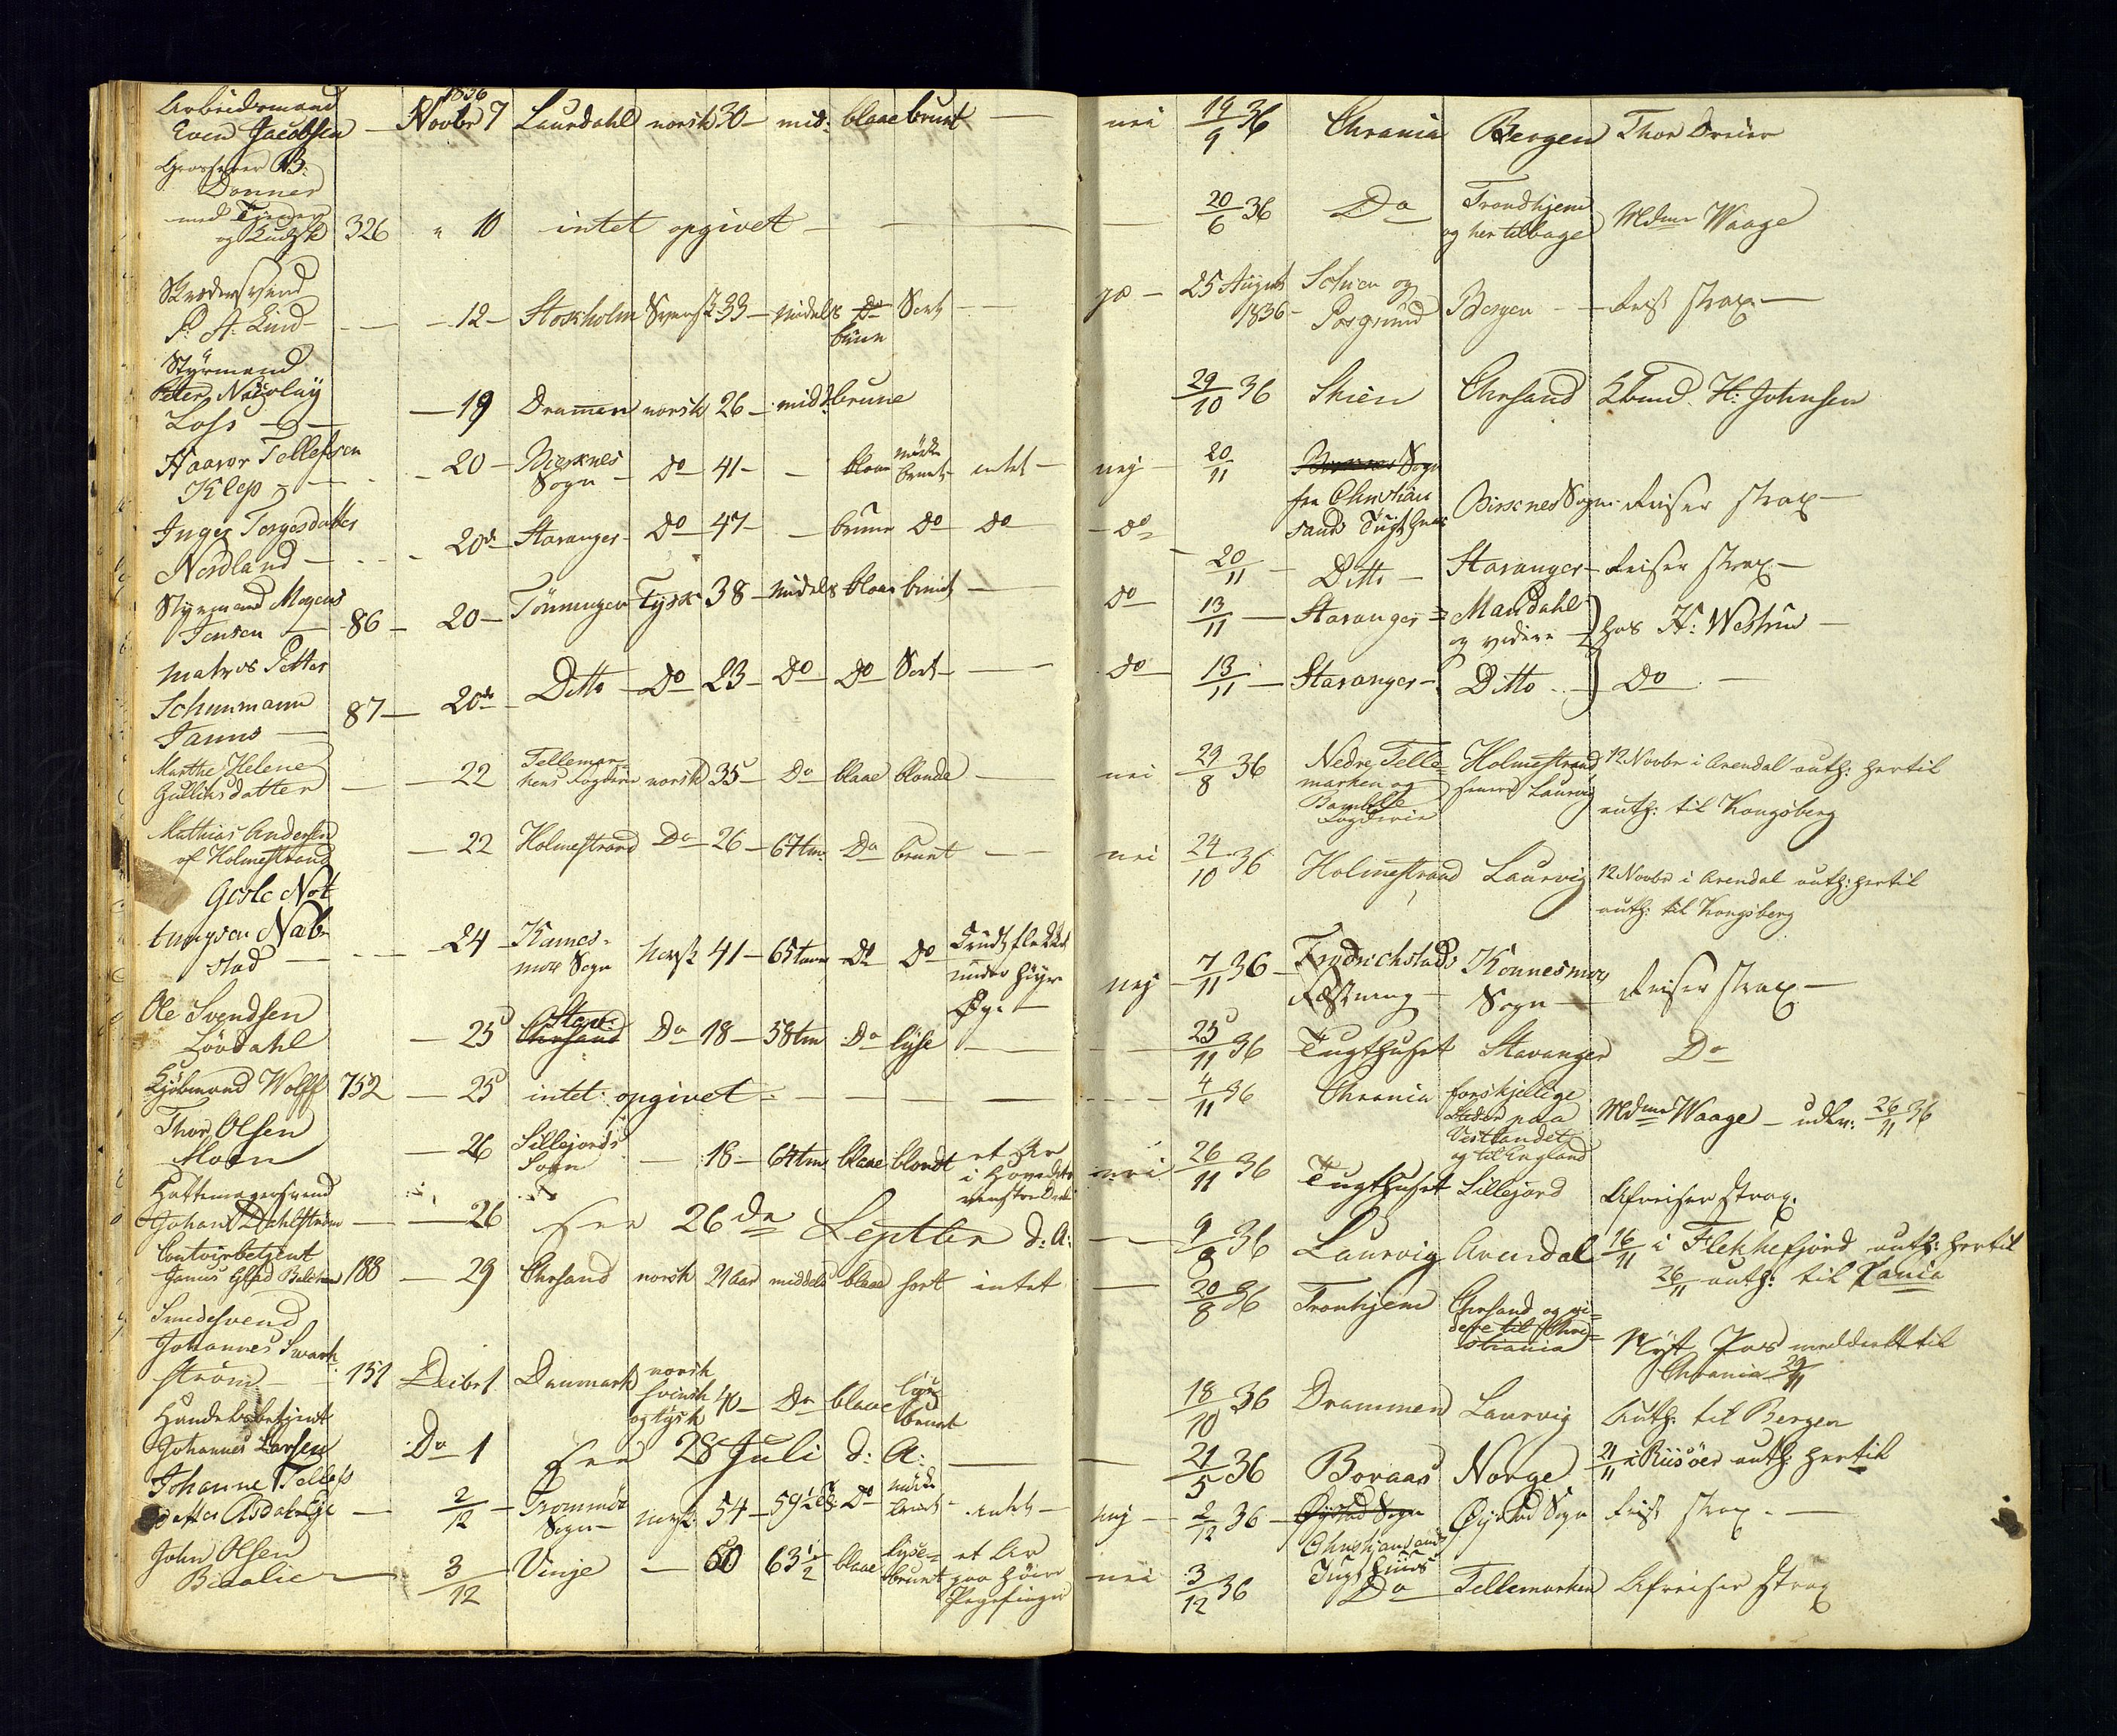 Arbeidsmand
Even Jacobsen — 1836 Novbr 7 Laurdahl norsk 30 — mid: blaae brunt — nei 19/9 36 Chrania Bergen Thor Dreier
Grosserer B:
Donner
med Tjener
og Kudsk 326 " 10 intet opgivet — — — 20/6 36 Do Trondhjem og her tilbage Mdme Waage
Skrædersvend
P: A: Lind — — 12 — Stockholm Svensk 33 — Middels Do brune Sort — ja — 25 August 1836 — Schien og Porsgrund Bergen — Reist strax —
Styrmand
Peter Nicolay
Loss — 19 Dramen norsk 26 — midd: brune 29/10 36 Skien Chrsand H: Johnsen
Haavor Tellefsen
Klep — 20 — Birknes Sogn — Do 41 — — blaae mörke brunt — intet — nej — 20/11 Sogn fra Christiansands Tugthuus Birknes Sogn — Reiser strax —
Inger Torgesdatter
Nordland — 20de Stavanger — Do 47 — — brune Do Do — Do 20/11 — Ditto — Stavanger — Reiser strax —
Styrmand Mogens
Jensen — 86 — 20 — Tönningen Tysk 38 — Middels blaae brunt — Do 13/11 — Stavanger — Mandahl og videre — hos H: Westrue —
Matros Petter
Schunmann
Janns — 87 — 20de Ditto — Do 23 — Do Do Sort — — Do — 13/11 — Stavanger — Ditto — Do —
Marthe Helene
Gulliksdatter — — 22 Tellemarkens Fogderie norsk 35 — Do blaae blonde — nei 29/8 36 Nedre Tellemarken og Bamble Fogderie Holmestrand senere Laurvig 12 Novbr i Arendal auth: hertil
auth: til Kongsberg
Mathias Andersen
af Holmestrand — 22 Holmestrand Do 26 — 64tm Do brunt — — nei 24/10 36 Holmestrand Laurvig 12 Novbr i Arendal auth: hertil
auth: til Kongsberg
Gisle Not
tungson Nab
stad — — — 24 — Norsk 41 — 65tom Do Do Krudtflekket under höyre Øye — nej — 7/11 36 — Fredrichstads Fæstning — Konnesmoe Sogn — Reiser strax —
Ole Svendsen
Lövdahl — 25 Chrsand Stav: Do 18 — 58tm Do lyse — — 25/11 36 Tugthuset Stavanger Do
Kjöbmand Wolff 752 — 25 intet opgivet — — — — 4/11 36 Chrania forskjellige Steder paa Vestlandet og til England Mdme Waage — udkv: 26/11 36
Thor Olsen
Moen — 26 Sillejords Sogn — 18 — 64tm blaae blondt et Ar i Hovedets venstre nei 26/11 36 Tugthuset Sillejord Afreiser strax.
Hattemagersvend
Johan Dahlström — — 26 see 26de Septbr d: A: — 9/8 36 Laurvig Arendal 16/11 i Flekkefjord auth: hertil
26/11 auth: til Xania
Contoirbetjent
188 — 29 Chrsand norsk 21 Aar middels blaae sort intet — 20/8 36 Tronhjem Chrsand og videre til Christiania Nyt Pas meddeelt til
Chrania 29/11
Smedesvend
Johannes Swart
ström — 151 Decbr 1 Danmark norsk svensk og tysk 40 — Do blaae lyse brunt 18/10 36 Drammen Laurvig Auth: til Bergen
Handelsbetjent
Johannes Larsen Do 1 see 28 Juli d: A: — — 21/5 36 Boraas Norge 21/11 i Riisöer auth: hertil
Johanne Tellefs
datter — 2/12 — Trommöe Sogn — norsk: 54 — 59½ Do mörke brunt — intet — nej — 2/12 36 — Øyestad Sogn Christiansands Tugthuus Øyestad Sogn Reist strax —
John Olsen
— 3/12 Vinje — 60 63½ blaae lyse brunt et Ar paa Höire Pegefinger nei 3/12 36 Do Tellemarken Afreiser strax